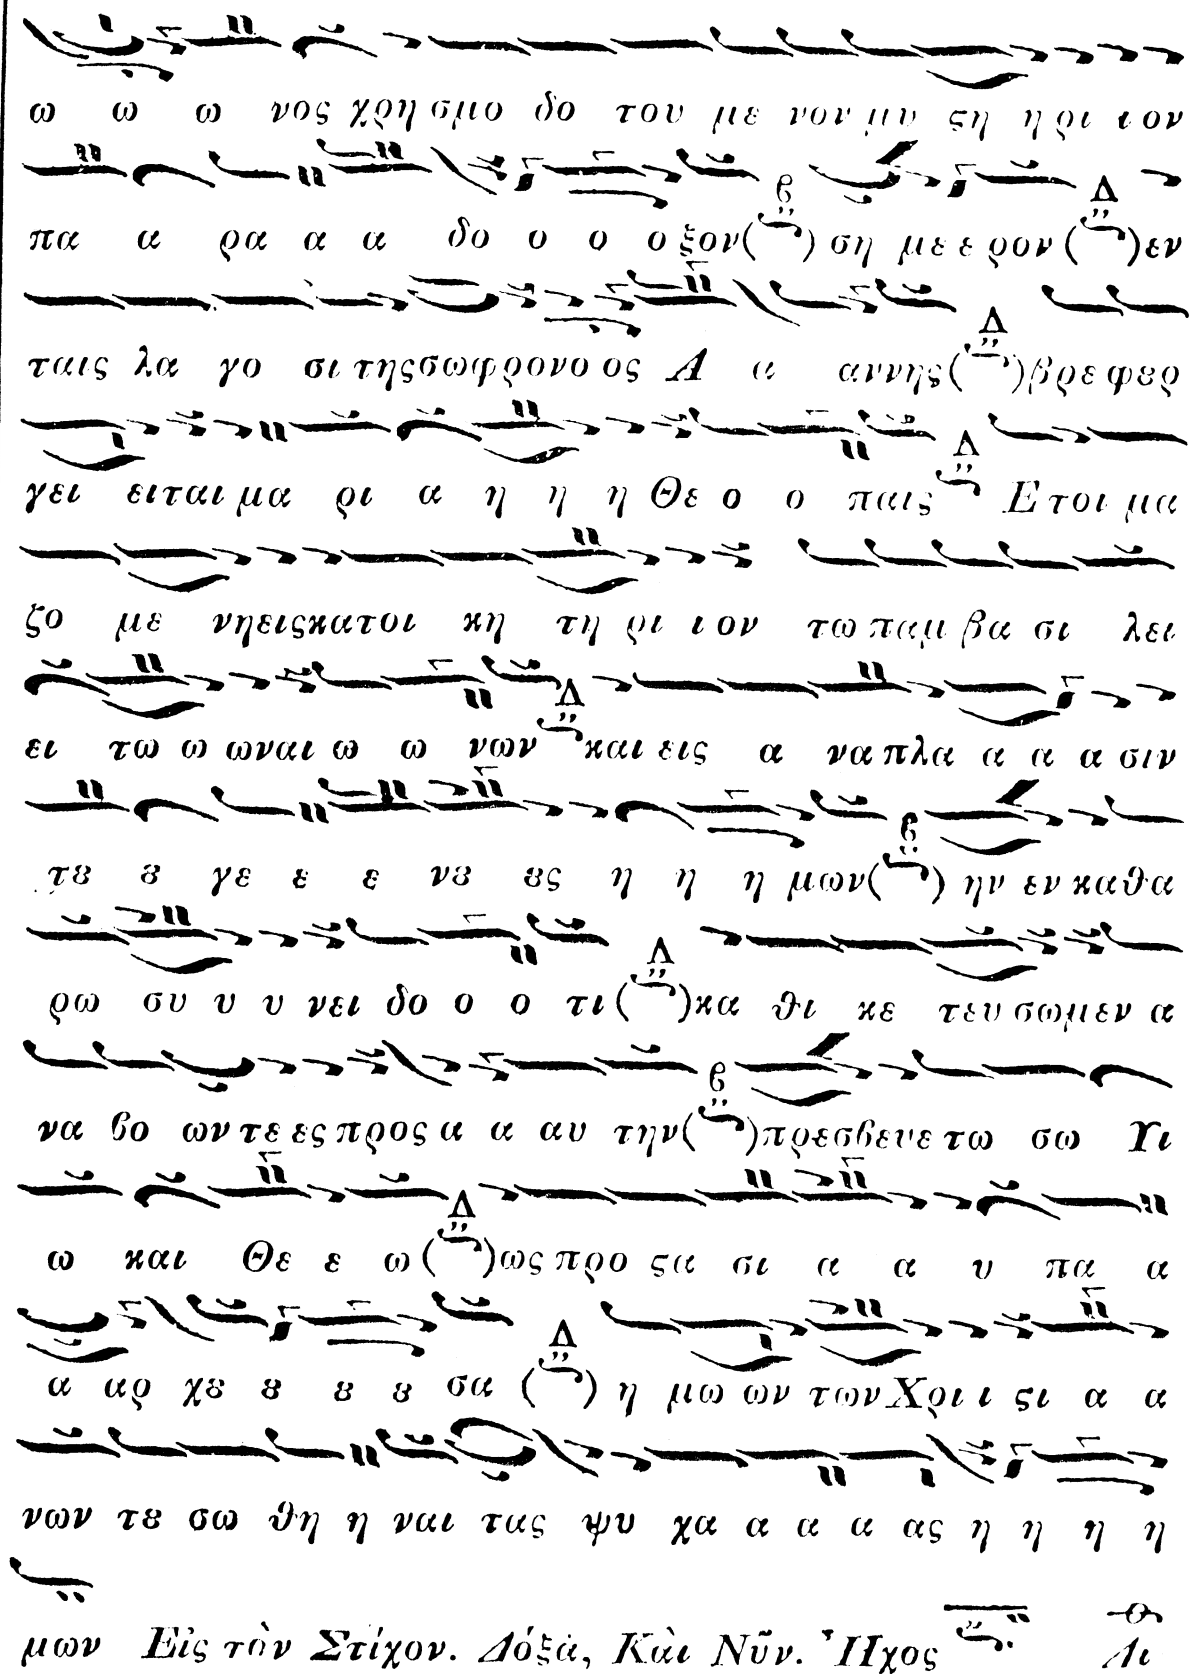 ω ω ω νος χρη σμο δο του με νον μυ ϛη η ρι ι ον
πα α ρα α α δο ο ο ο ξον( ) ση με ε ρον ( )εν
ταις λα γο σι της σω φρο νο ο ος Α α αννης( )βρε φερ
γει ει ται μα ρι α η η η Θε ο ο παις Ε τοι μα
ζο με νη εις κα τοι κη τη ρι ι ον τω παμ βα σι λει
ει τω ω ω ναι ω ω νων και εις α να πλα α α α σιν
τȣ ȣ γε ε ε νȣ ȣς η η η μων( ) ην εν κα θα
ρω συ υ υ νει δο ο ο τι( )κα θι κε τευ σω μεν α
να βο ων τε ες προς α α αυ την( )πρεσβευε τω σω Υι
ω και Θε ε ω( )ως προ ϛα σι α α υ πα α
α αρ χȣ ȣ ȣ ȣ σα ( ) η μω ων των Χρι ι ϛι α α
νων τε σω θη η ναι τας ψυ χα α α α ας η η η η
μων Εἰς τὸν Στίχον. Δόξα, Κὰι Νῦν. Ἦχος Δι